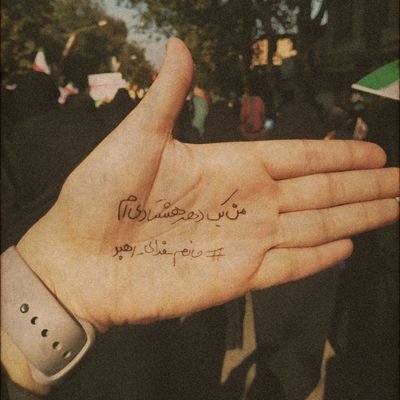 من یک دهه هشتادی ام
#جانم_فدای_رهبر